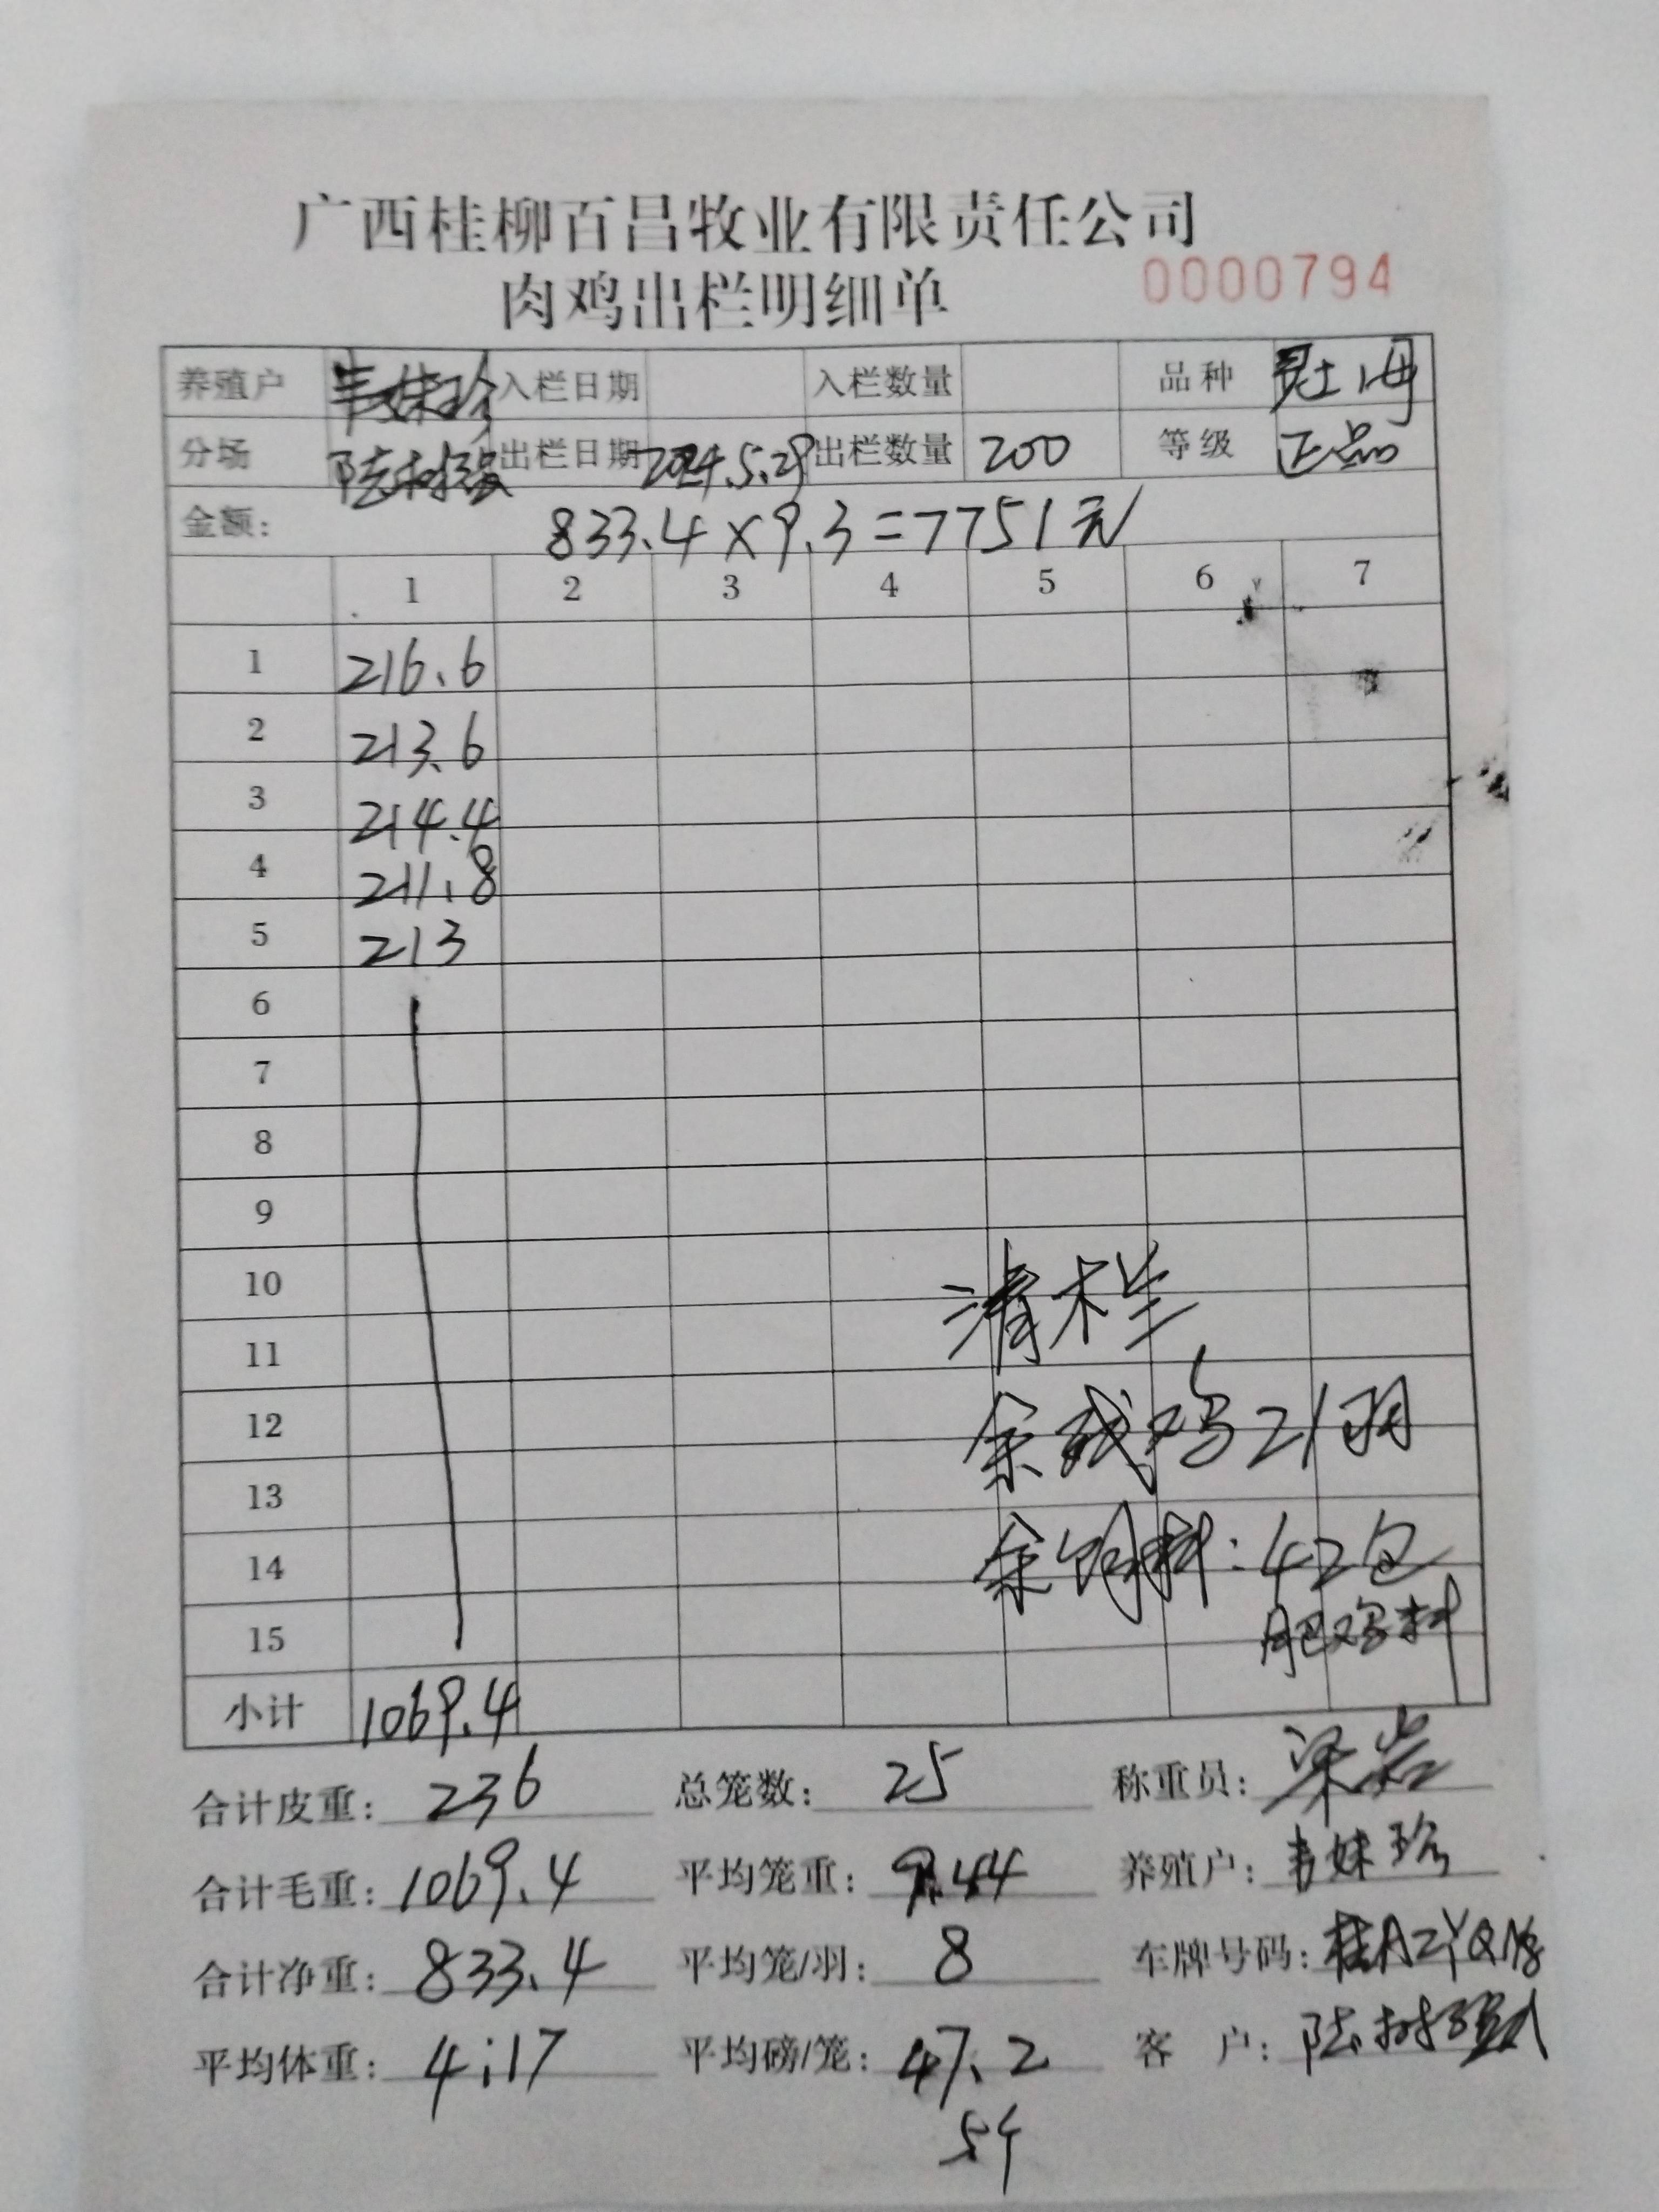 广西桂柳百昌牧业有限责任公司
肉鸡出栏明细单 0000794
养殖户 韦妹珍 入栏日期 入栏数量 品种 土海
分场 陆树强 出栏日期 2024.5.29 出栏数量 200 等级 正品
金额: 833.4×9.3=7751元
1 2 3 4 5 6 7
1 216.6
2 213.6
3 214.4
4 211.8
5 213
6
7
8
9
10 清栏
11
12 余残鸡21羽
13
14 余饲料:42包
15 肥鸡料
小计 1069.4
合计皮重: 236 总笼数: 25 称重员: 梁岩
合计毛重: 1069.4 平均笼重: 9.44 养殖户: 韦妹珍
合计净重: 833.4 平均笼/羽: 8 车牌号码: 桂AZYQ
平均体重: 4.17 平均磅/笼: 47.2 客 户: 陆树强
5个